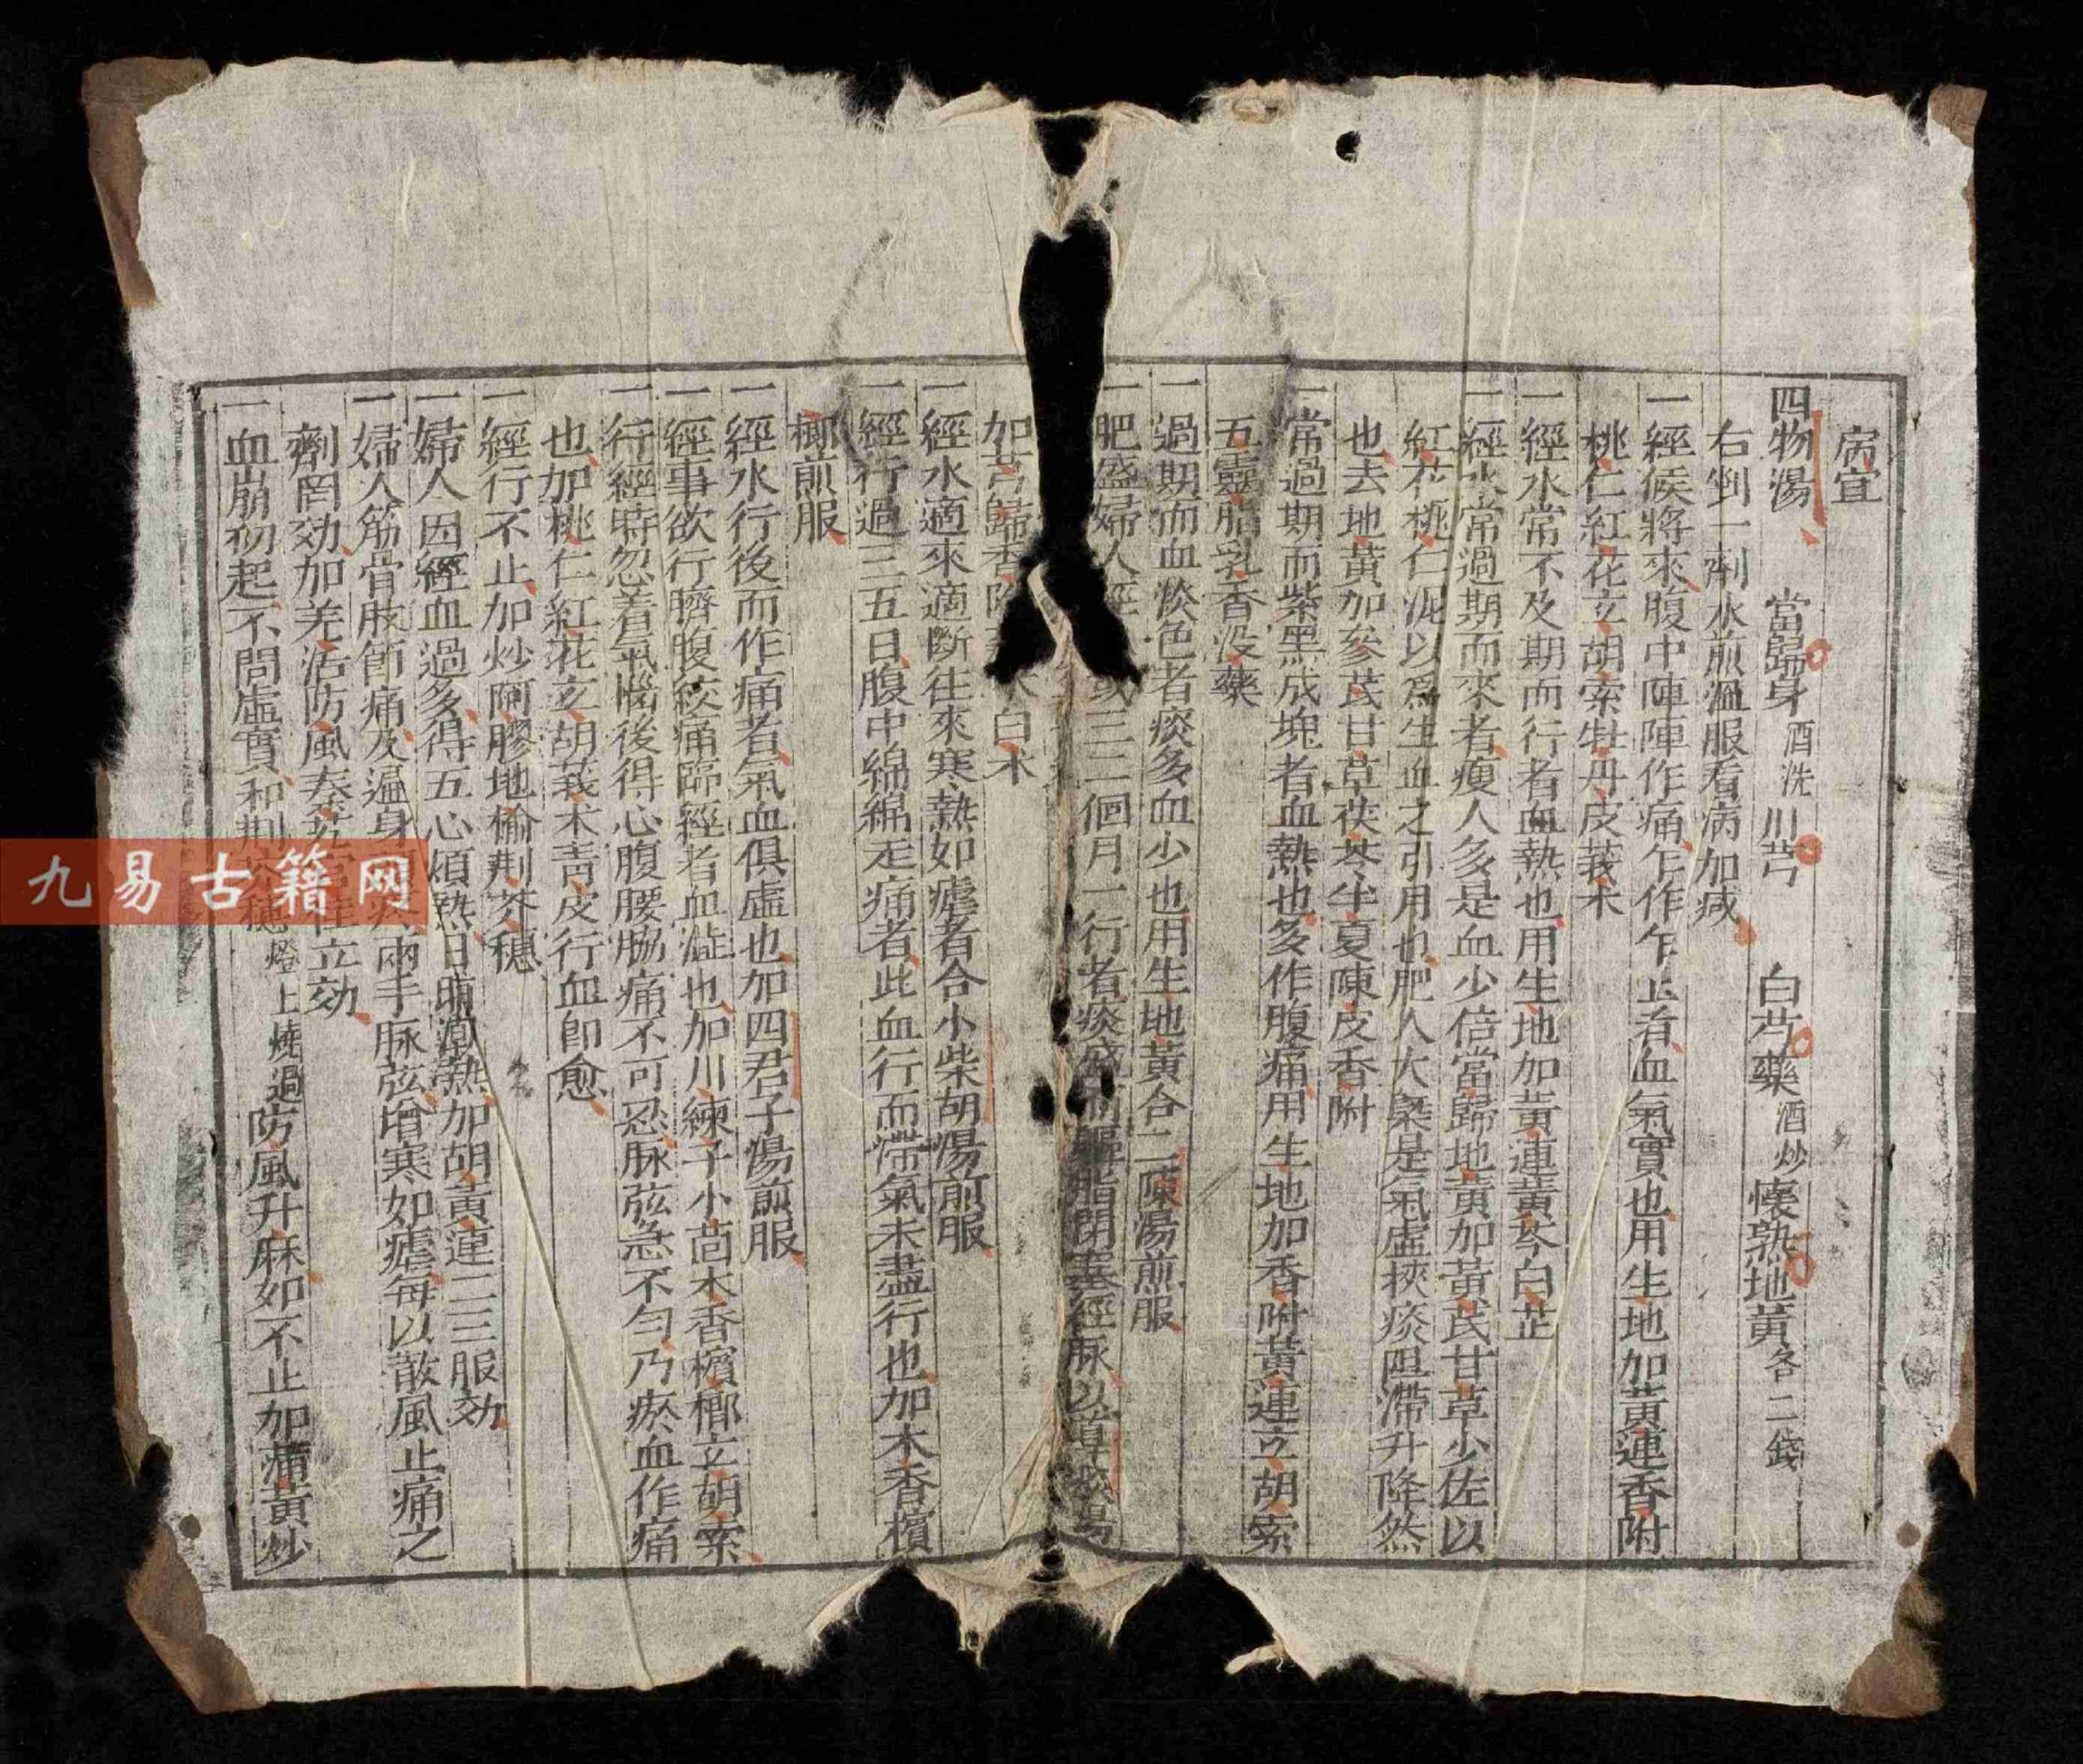 病宜
四物湯 當歸身酒洗 川芎 白芍藥酒炒 懷熟地黃各二錢
右剉一劑水煎溫服看病加减
一經候將來腹中陣陣作痛乍作乍止者血氣實也用生地加黃連香附
桃仁紅花玄胡索牡丹皮莪朮
一經水常不及期而行者血熱也用生地加黃連黃芩白芷
一經水常過期而來者瘦人多是血少倍當歸地黃加黃芪甘草少佐以
紅花桃仁泥以爲生血之引用也肥人大槩是氣虛挾痰阻滯升降然
也去地黃加參芪甘草茯苓半夏陳皮香附
一常過期而紫黑成塊者血熱也多作腹痛用生地加香附黃連玄胡索
五靈脂乳香没藥
一過期而血淡色者痰多血少也用生地黃合二陳湯煎服
一肥盛婦人經 或三二個月一行者痰盛而軀脂閉塞經脉以導痰湯
加芎歸香附 白朮
一經水適來適斷往來寒熱如瘧者合小柴胡湯煎服
一經行過三五日腹中綿綿走痛者此血行而滯氣未盡行也加木香檳
榔煎服
一經水行後而作痛者氣血俱虛也加四君子湯煎服
一經事欲行臍腹絞痛臨經者血澁也加川練子小茴木香檳榔玄胡索
一行經時忽着氣惱後得心腹腰脇痛不可忍脉弦急不勻乃瘀血作痛
也加桃仁紅花玄胡莪朮靑皮行血卽愈
一經行不止加炒阿膠地榆荆芥穗
一婦人因經血過多得五心煩熱日晡潮熱加胡黃連二三服効
一婦人筋骨肢節痛及遍身 兩手脉弦增寒如瘧每以散風止痛之
劑罔効加羌活防風秦艽官桂立効
一血崩初起不問虛實和荆芥穗燈上燒過防風升麻如不止加蒲黃炒
九易古籍网